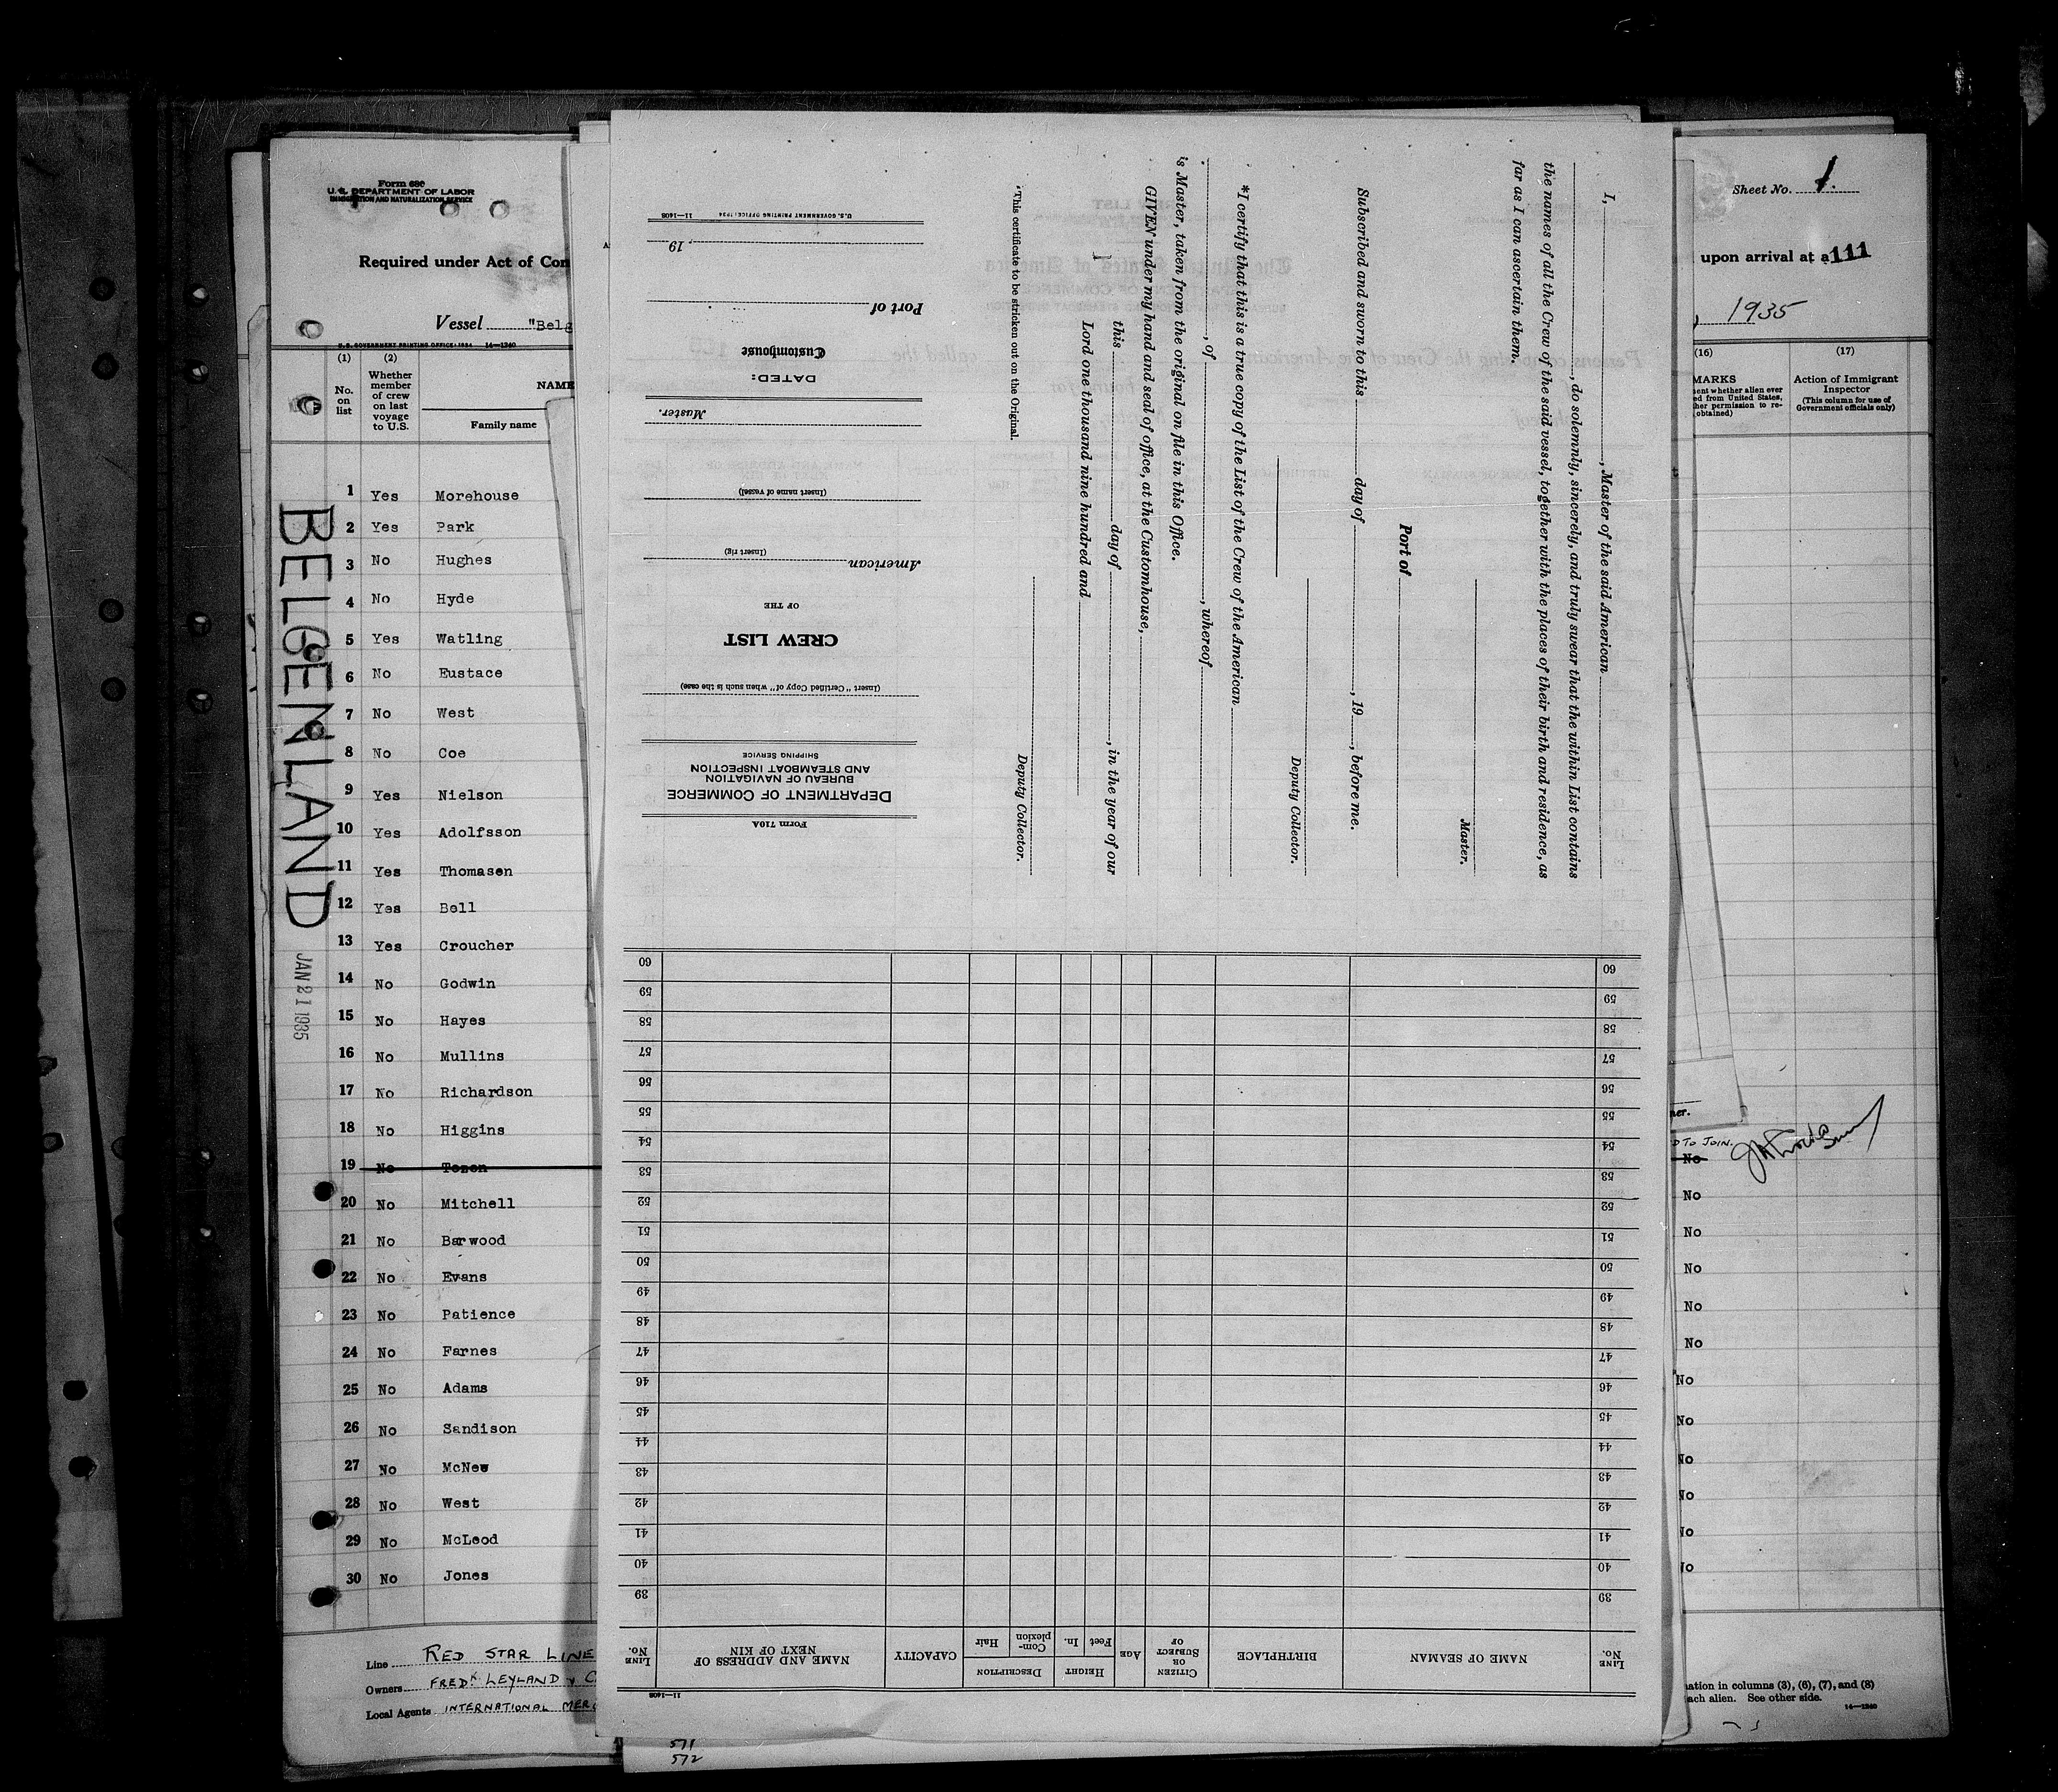 Form 680
U. S. DEPARTMENT OF LABOR
IMMIGRATION AND NATURALIZATION SERVICE
Required under Act of Con
Vessel "Belg
U. S. GOVERNMENT PRINTING OFFICE: 1934 14—1240
(1) (2)
No. on list
Whether member of crew on last voyage to U.S.
NAME
Family name
1 Yes Morehouse
2 Yes Park
3 No Hughes
4 No Hyde
5 Yes Watling
6 No Eustace
7 No West
8 No Coe
9 Yes Nielson
10 Yes Adolfsson
11 Yes Thomasen
12 Yes Bell
13 Yes Croucher
14 No Godwin
15 No Hayes
16 No Mullins
17 No Richardson
18 No Higgins
19 No
20 No Mitchell
21 No Barwood
22 No Evans
23 No Patience
24 No Farnes
25 No Adams
26 No Sandison
27 No McNew
28 No West
29 No McLeod
30 No Jones
BELGENLAND
JAN 21 1935
Line RED STAR LINE
Owners FREDK LEYLAND & C
Local Agents INTERNATIONAL MERC
571
572
I, , Master of the said American
, do solemnly, sincerely, and truly swear that the within List contains
the names of all the Crew of the said vessel, together with the places of their birth and residence, as
far as I can ascertain them.
Master.
Port of
Subscribed and sworn to this day of , 19 , before me.
Deputy Collector.
*I certify that this is a true copy of the List of the Crew of the American
, of , whereof
is Master, taken from the original on file in this Office.
GIVEN under my hand and seal of office, at the Customhouse,
this day of , in the year of our
Lord one thousand nine hundred and
Deputy Collector.
*This certificate to be stricken out on the Original.
Form 710A
DEPARTMENT OF COMMERCE
BUREAU OF NAVIGATION
AND STEAMBOAT INSPECTION
SHIPPING SERVICE
(Insert "Certified Copy of" when such is the case)
CREW LIST
OF THE
American
(Insert rig)
(Insert name of vessel)
Master.
DATED:
Customhouse
Port of
, 19
U.S. GOVERNMENT PRINTING OFFICE: 1934 11—1408
11—1408
LINE No.
NAME OF SEAMAN
BIRTHPLACE
CITIZEN OR SUBJECT OF
AGE
HEIGHT
Feet In.
DESCRIPTION
Complexion Hair
CAPACITY
NAME AND ADDRESS OF NEXT OF KIN
LINE No.
39 39
40 40
41 41
42 42
43 43
44 44
45 45
46 46
47 47
48 48
49 49
50 50
51 51
52 52
53 53
54 54
55 55
56 56
57 57
58 58
59 59
60 60
Sheet No. 1.
upon arrival at a 111
, 1935
(16) (17)
MARKS
ent whether alien ever
ed from United States,
her permission to re-
obtained)
Action of Immigrant
Inspector
(This column for use of
Government officials only)
ner.
D TO JOIN.
No
No
No
No
No
No
No
No
No
No
No
No
ation in columns (3), (6), (7), and (8)
ach alien. See other side.
14—1240